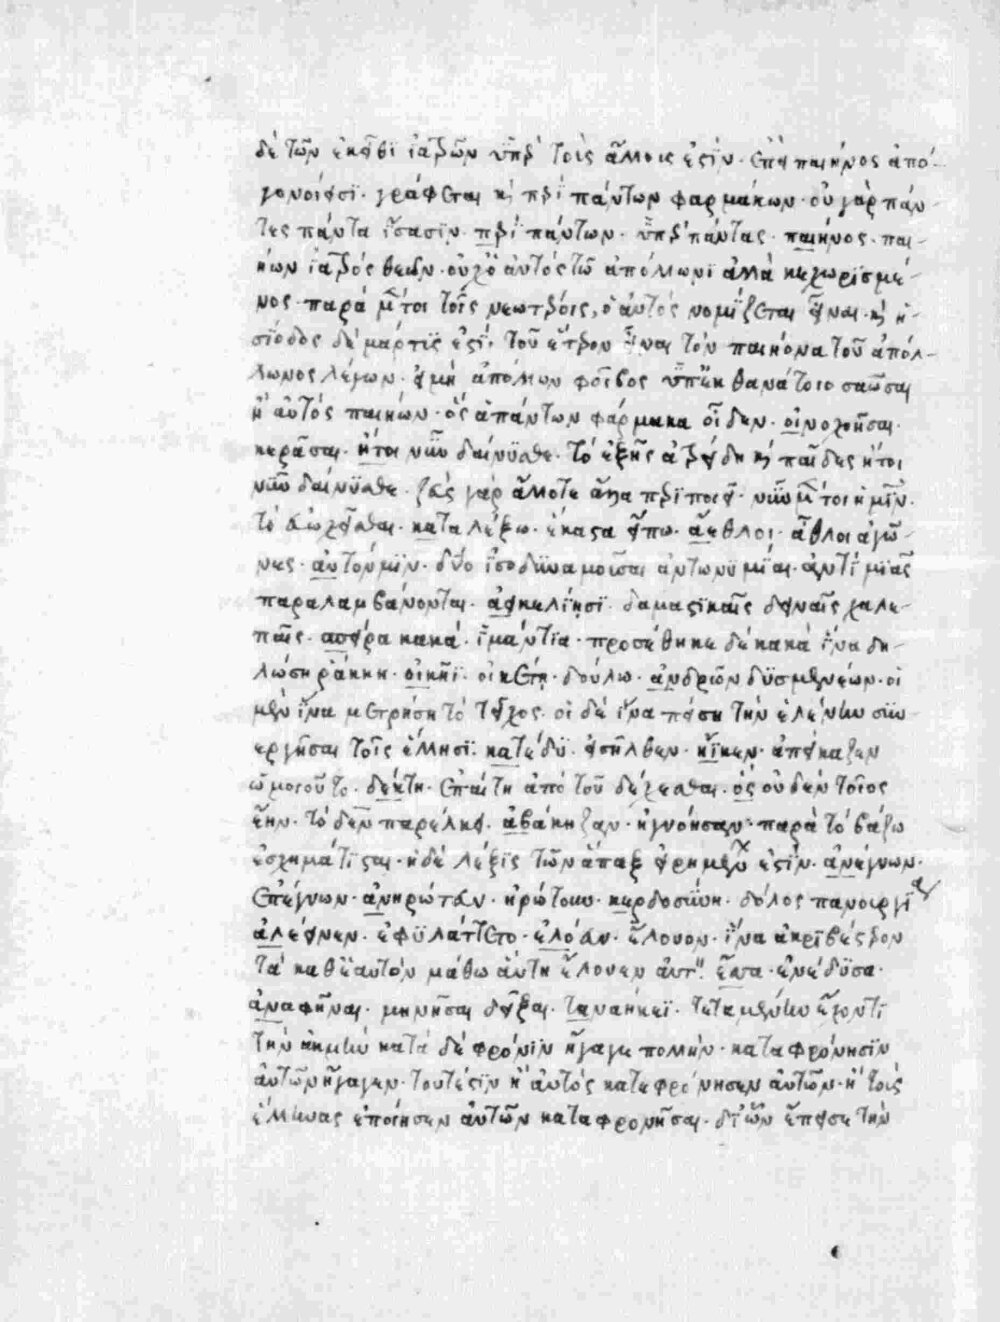 δὲ τῶν ἐκεῖθι ἰατρῶν ὑπὲρ τοὺς ἄλλους ἐστίν· ἐπεὶ παιήνος ἀπό-
γονοί εἰσι· γράφεται καὶ περὶ πάντων φαρμάκων· οὐ γὰρ πάν-
τες πάντα ἴσασιν· περὶ πάντων· ὑπὲρ πάντας· παιήνος· παι-
ήων ἰατρὸς θεῶν· οὐχ ὁ αὐτὸς τῶ ἀπόλλωνι ἀλλὰ κεχωρισμέ-
νος· παρὰ μέντοι τοῖς νεωτέροις, ὁ αὐτὸς νομίζεται εἶναι· καὶ ἡ-
σίοδος δὲ μάρτυς ἐστὶ τοῦ ἕτερον εἶναι τὸν παιήονα τοῦ ἀπόλ-
λωνος λέγων· εἰ μὴ ἀπόλλων φοῖβος ὑπὲκ θανάτοιο σαῶσαι
ἢ αὐτὸς παιήων· ὃς ἁπάντων φάρμακα οἶδεν· οἰνοχοῆσαι·
κερᾶσαι· ἤτοι νῦν δαίνυσθε· τὸ ἑξῆς ἀτρείδη καὶ παῖδες ἤτοι
νῦν δαίνυσθε· ζεὺς γὰρ ἄλλοτε ἄλλα περιποιεῖ· νῦν μέντοι ἡμῖν·
τὸ εὐωχεῖσθαι· καταλέξω· ἕκαστα εἴπω· ἄεθλοι· ἆθλοι ἀγῶ-
νες· αὐτόν μιν· δύο ἰσοδυναμοῦσαι ἀντωνυμίαι· ἀντὶ μιᾶς
παραλαμβάνονται· ἀεικελίησι· δαμαστικαῖς δειναῖς χαλε-
παῖς· σπεῖρα κακά· ἱμάντια· προσέθηκε δὲ κακὰ ἵνα δη-
λώση ῥάκκη· οἰκῆι· οἰκέτη· δούλω· ἀνδρῶν δυσμενέων· οἱ
μὲν ἵνα μετρήση τὸ τεῖχος· οἱ δὲ ἵνα πείση τὴν ἑλένην συν-
εργῆσαι τοῖς ἕλλησι· κατέδυ· εἰσῆλθεν· ἤϊκεν· ἀπείκαζεν
ὡμοιοῦτο· δέκτη· ἐπαίτη ἀπὸ τοῦ δέχεσθαι· ὃς οὐδὲν τοῖος
ἔην· τὸ δὲν παρέλκει· ἀβάκησαν· ἠγνόησαν· παρὰ τὸ βάζω
ἐσχημάτισται· ἡ δὲ λέξις τῶν ἅπαξ εἰρημένων ἐστίν· ἀνέγνων·
ἐπέγνων· ἀνηρώτων· ἠρώτουν· κερδοσύνη· δόλος πανουργία
ἀλέεινεν· ἐφυλάττετο· ἐλόευν· ἔλουον· ἵνα ἀκριβέστερον
τὰ καθ' ἑαυτὸν μάθω αὐτὴ ἔλουεν αὐτόν· ἕσσα· ἐνέδυσα·
ἀναφῆναι· μηνῦσαι δεῖξαι· ταναήκεϊ· τεταμένην ἔχοντι
τὴν ἀκμὴν κατὰ δὲ φρόνιν ἤγαγε πολλήν· καταφρόνησιν
αὐτῶν ἤγαγεν· τουτέστιν ἢ αὐτὸς κατεφρόνησεν αὐτῶν· ἢ τοὺς
ἕλληνας ἐποίησεν αὐτῶν καταφρονῆσαι· δι' ὧν ἔπεισε τὴν